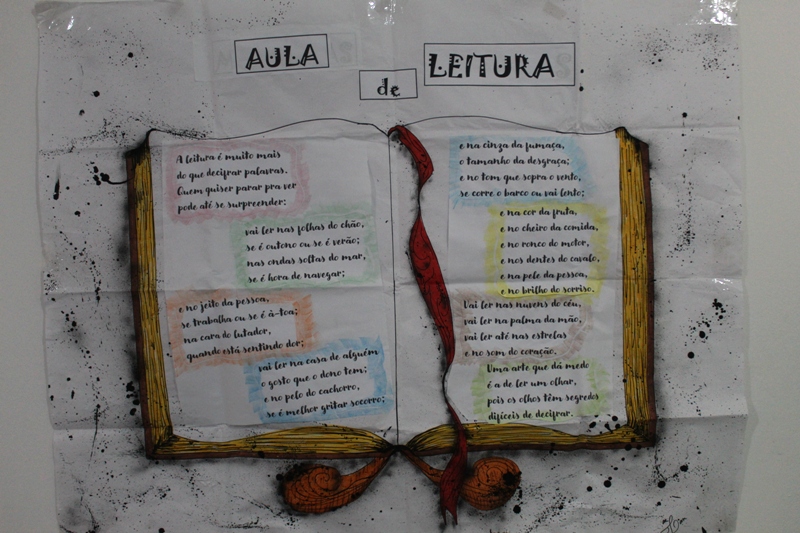 AULA
de
LEITURA
A leitura é muito mais
do que decifrar palavras.
Quem quiser parar pra ver
pode até se surpreender:
vai ler nas folhas do chão,
se é outono ou se é verão;
nas ondas soltas do mar,
se é hora de navegar;
e no jeito da pessoa,
se trabalha ou se é à-toa;
na cara do lutador,
quando está sentindo dor;
vai ler na casa de alguém
o gosto que o dono tem;
e no pelo do cachorro,
se é melhor gritar socorro;
e na cinza da fumaça,
o tamanho da desgraça;
e no tom que sopra o vento,
se corre o barco ou vai lento;
e na cor da fruta,
e no cheiro da comida,
e no ronco do motor,
e nos dentes do cavalo,
e na pele da pessoa,
e no brilho do sorriso.
Vai ler nas nuvens do céu,
vai ler na palma da mão,
vai ler até nas estrelas
e no som do coração.
Uma arte que dá medo
é a de ler um olhar,
pois os olhos têm segredos
difíceis de decifrar.